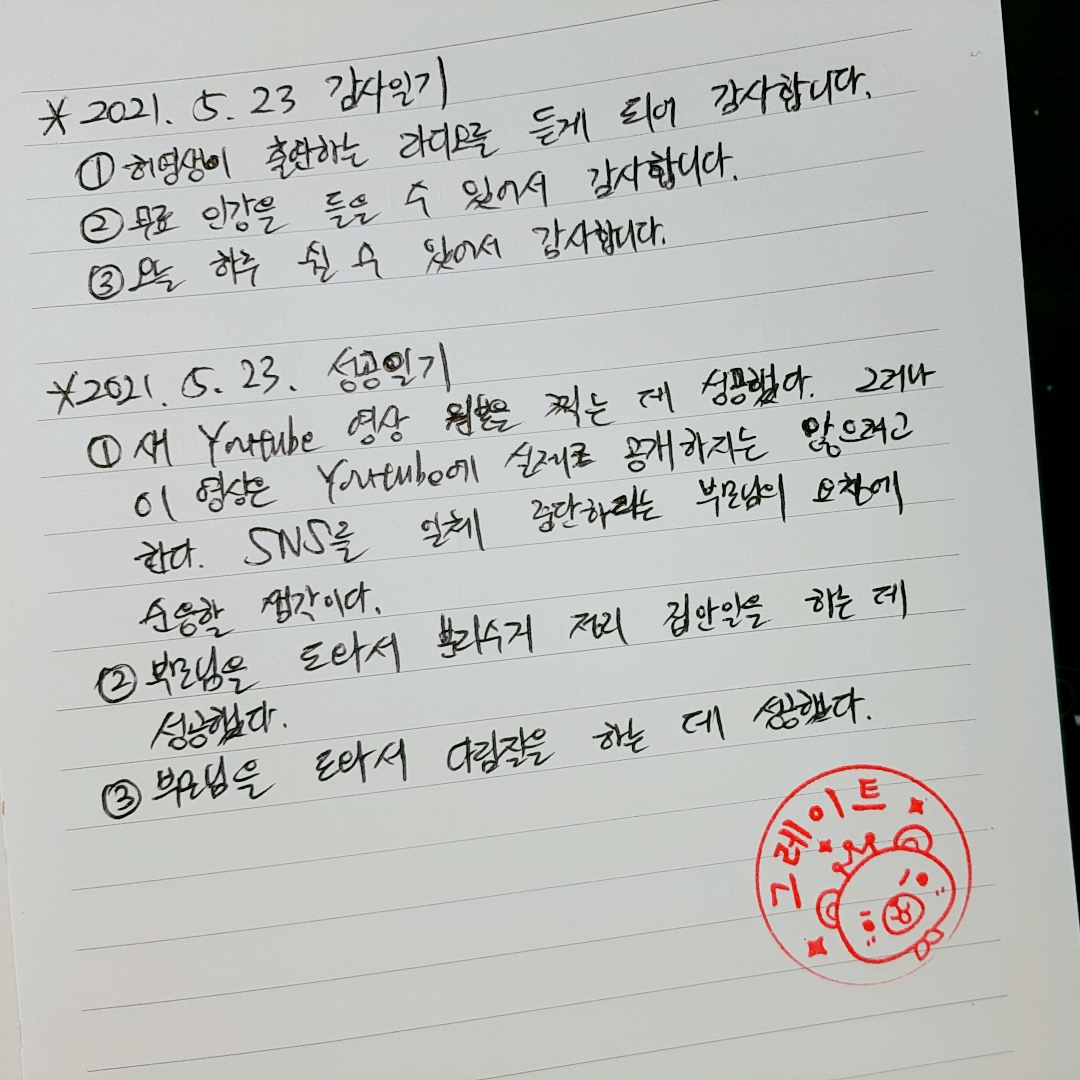 * 2021. 5. 23 감사일기
① 허영생이 출연하는 라디오를 듣게 되어 감사합니다.
② 무료 인강을 들을 수 있어서 감사합니다.
③ 오늘 하루 쉴 수 있어서 감사합니다.
* 2021. 5. 23. 성공일기
① 새 Youtube 영상 원본을 찍는 데 성공했다. 그러나
이 영상은 Youtube에 실제로 공개하지는 않으려고
한다. SNS를 일체 중단하라는 부모님의 요청에
순응할 생각이다.
② 부모님을 도와서 분리수거 정리 집안일을 하는 데
성공했다.
③ 부모님을 도와서 다림질을 하는 데 성공했다.
그레이트